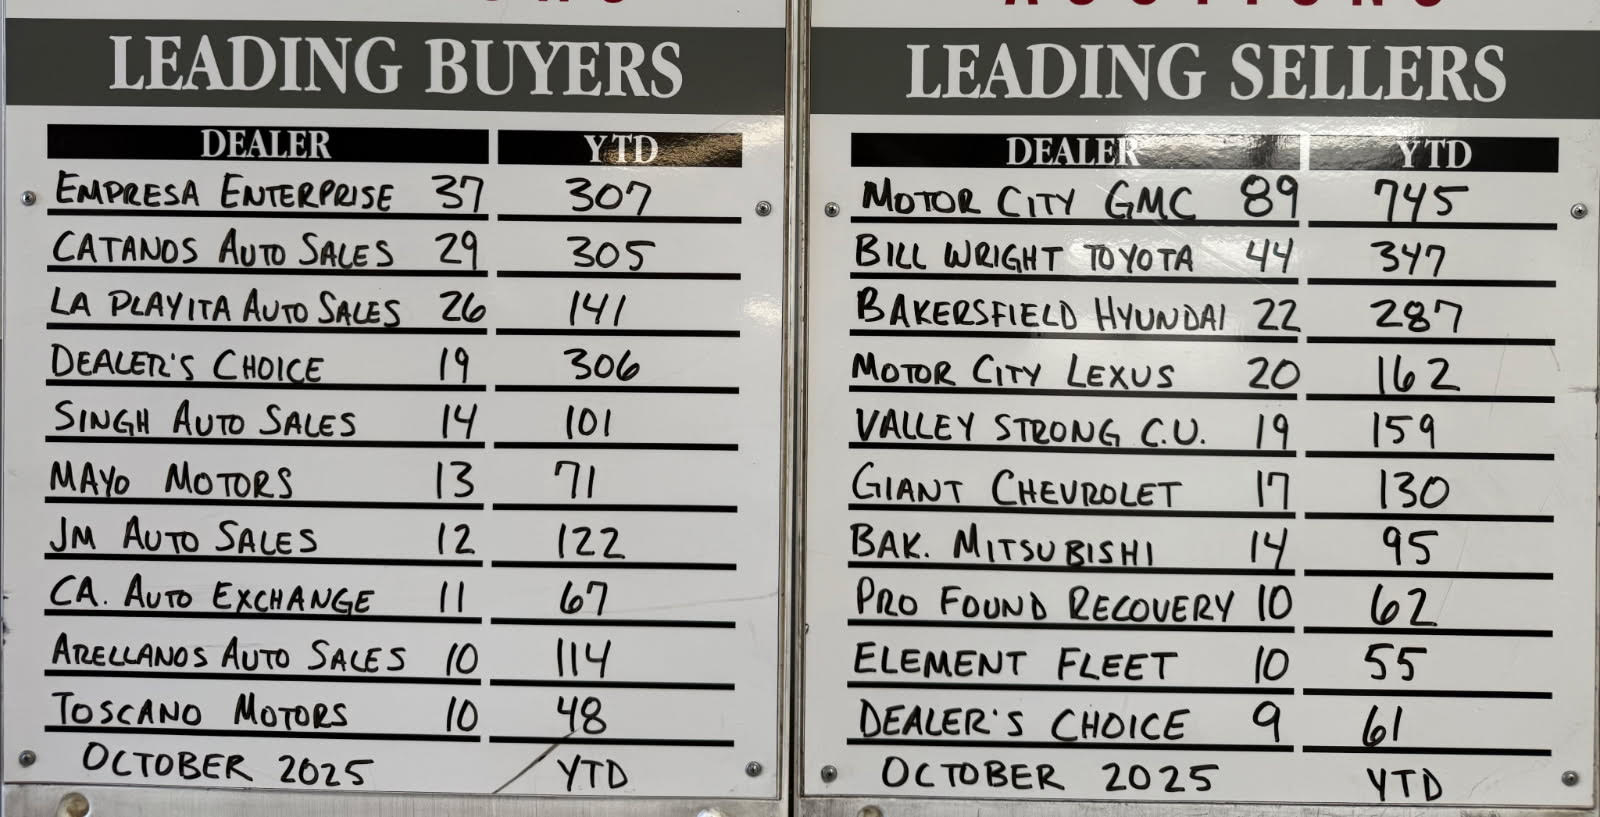 LEADING BUYERS
DEALER YTD
EMPRESA ENTERPRISE 37 307
CATANOS AUTO SALES 29 305
LA PLAYITA AUTO SALES 26 141
DEALER'S CHOICE 19 306
SINGH AUTO SALES 14 101
MAYO MOTORS 13 71
JM AUTO SALES 12 122
CA. AUTO EXCHANGE 11 67
ARELLANOS AUTO SALES 10 114
TOSCANO MOTORS 10 48
OCTOBER 2025 YTD
LEADING SELLERS
DEALER YTD
MOTOR CITY GMC 89 745
BILL WRIGHT TOYOTA 44 347
BAKERSFIELD HYUNDAI 22 287
MOTOR CITY LEXUS 20 162
VALLEY STRONG C.U. 19 159
GIANT CHEVROLET 17 130
BAK. MITSUBISHI 14 95
PRO FOUND RECOVERY 10 62
ELEMENT FLEET 10 55
DEALER'S CHOICE 9 61
OCTOBER 2025 YTD